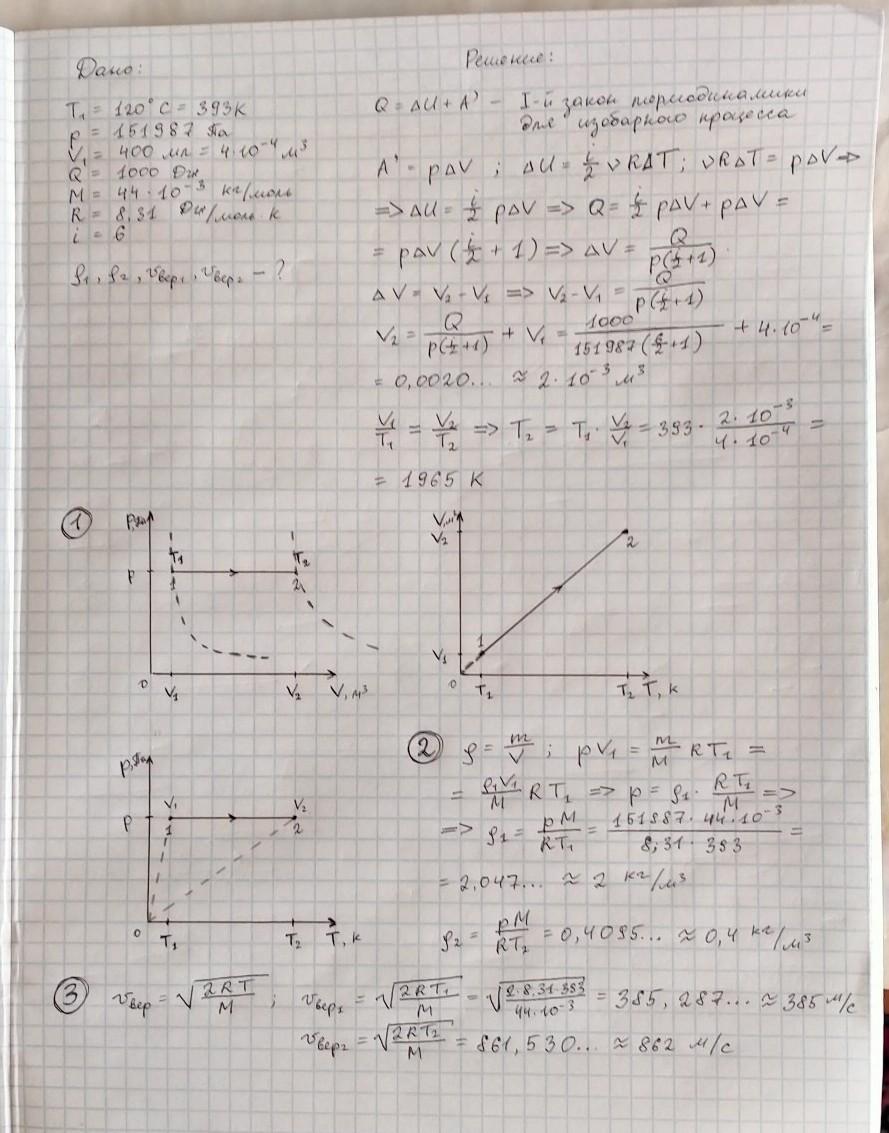 Дано:
T₁ = 120°C = 393К
p = 151987 Па
V₁ = 400 мл = 4·10⁻⁴ м³
Q = 1000 Дж
M = 44·10⁻³ кг/моль
R = 8,31 Дж/моль·К
i = 6
ρ₁, ρ₂, vвер₁, vвер₂ - ?
Решение:
Q = ΔU + A' - I-й закон термодинамики
для изобарного процесса
A' = pΔV ; ΔU = i/2 νRΔT ; νRΔT = pΔV =>
=> ΔU = i/2 pΔV => Q = i/2 pΔV + pΔV =
= pΔV (i/2 + 1) => ΔV = Q/p(i/2+1)
ΔV = V₂ - V₁ => V₂ - V₁ = Q/p(i/2+1)
V₂ = Q/p(i/2+1) + V₁ = 1000/151987(6/2+1) + 4·10⁻⁴ =
= 0,0020... ≈ 2·10⁻³ м³
V₁/T₁ = V₂/T₂ => T₂ = T₁ · V₂/V₁ = 393 · 2·10⁻³/4·10⁻⁴ =
= 1965 К
①
p,Па
T₁
T₂
p
1
2
0
V₁
V₂
V, м³
V,м³
V₂
2
1
V₁
0
T₁
T₂
T, К
p,Па
V₁
V₂
p
1
2
0
T₁
T₂
T, К
② ρ = m/V ; pV₁ = m/M RT₁ =
= ρ₁V₁/M RT₁ => p = ρ₁ · RT₁/M =>
=> ρ₁ = pM/RT₁ = 151987·44·10⁻³/8,31·393 =
= 2,047... ≈ 2 кг/м³
ρ₂ = pM/RT₂ = 0,4095... ≈ 0,4 кг/м³
③ vвер = √2RT/M ; vвер₁ = √2RT₁/M = √2·8,31·393/44·10⁻³ = 385,287... ≈ 385 м/с
vвер₂ = √2RT₂/M = 861,530... ≈ 862 м/с